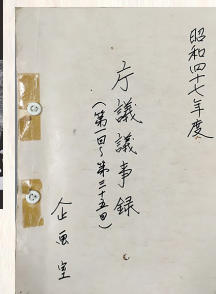 昭和四十七年度
庁議議事録
(第一回～第三十五回)
企画室